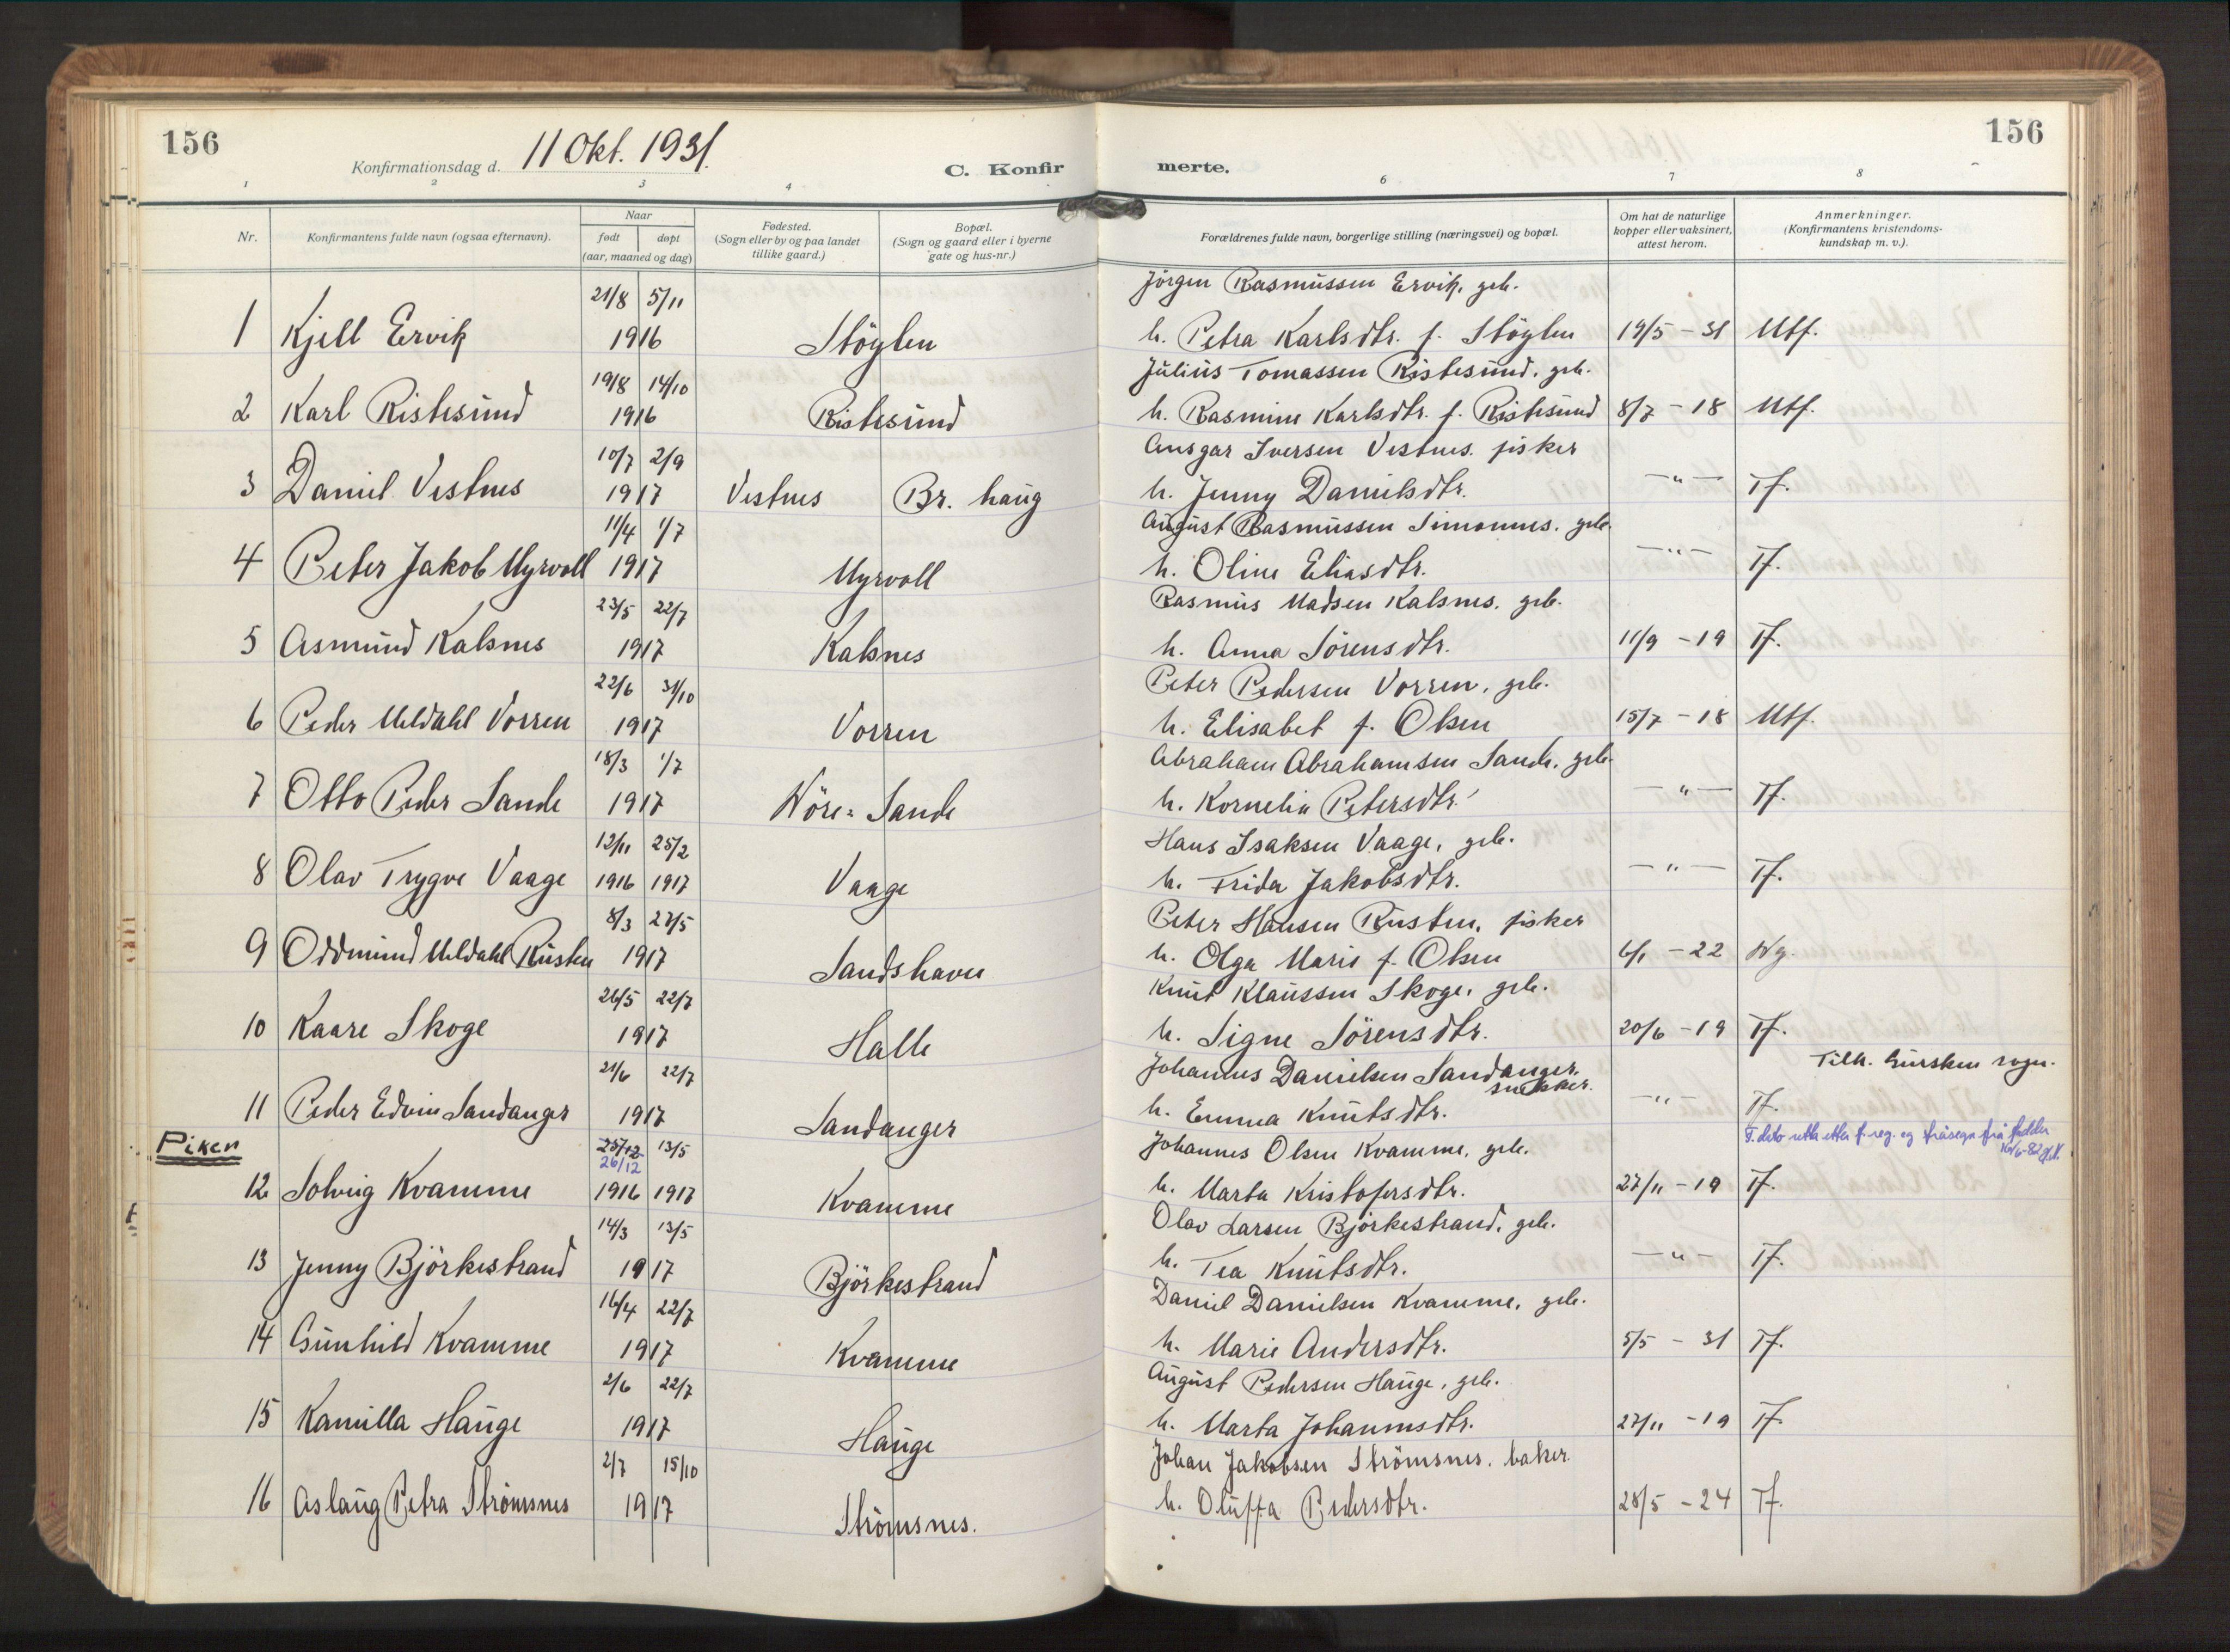 156
Konfirmationsdag d. 11 Okt. 1931.
C. Konfirmerte.
156
1 2 3 4 6 7 8
Nr.
Konfirmantens fulde navn (ogsaa efternavn).
Naar
født døpt
(aar, maaned og dag)
Fødested.
(Sogn eller by og paa landet
tillike gaard.)
Bopæl.
(Sogn og gaard eller i byerne
gate og hus-nr.)
Forældrenes fulde navn, borgerlige stilling (næringsvei) og bopæl.
Om hat de naturlige
kopper eller vaksinert,
attest herom.
Anmerkninger.
(Konfirmantens kristendoms-
kundskap m. v.).
21/8 5/11 Jörgen Rasmussen Ervik, gb.
1 Kjell Ervik 1916 Stöylen h. Petra Karlsdtr. f. Stöylen 19/5 - 31 Mtf.
19/8 14/10 Julius Tomassen Ristesund, gb.
2 Karl Ristesund 1916 Ristesund h. Rasmine Karlsdtr. f. Ristesund 8/7 - 18 Mtf.
10/7 2/9 Ansgar Iversen Vestnes. fisker
3 Daniel Vestnes 1917 Vestnes Br. haug h. Jenny Danielsdtr. —"— Tf.
11/4 1/7 August Rasmussen Simonnes. gb.
4 Peter Jakob Myrvoll 1917 Myrvoll h. Oline Eliasdtr. —"— Tf.
23/5 22/7 Rasmus Madsen Kalsnes, gb.
5 Asmund Kalsnes 1917 Kalsnes h. Anna Sörensdtr. 11/9 - 19 Tf.
22/6 31/10 Peter Pedersen Vorren, gb.
6 Peder Meldahl Vorren 1917 Vorren h. Elisabet f. Olsen 15/7 - 18 Mtf.
18/3 1/7 Abraham Abrahamsen Sande, gb.
7 Otto Peder Sande 1917 Nöre- Sande h. Kornelia Petersdtr. —"— Tf.
12/11 25/2 Hans Isaksen Vaage, gb.
8 Olav Trygve Vaage 1916 1917 Vaage h. Frida Jakobsdtr. —"— Tf.
8/3 27/5 Peter Hansen Rusten, fisker
9 Oddmund Meldahl Rusten 1917 Sandshavn h. Olga Marie f. Olsen 6/1 - 22 Ng.
26/5 22/7 Knut Klaussen Skoge, gb.
10 Kaare Skoge 1917 Halle h. Signe Sörensdtr. 20/6 - 19 Tf.
21/6 22/7 Johannes Danielsen Sandanger, snekker. Tilh. Gursken sogn.
11 Peder Edvin Sandanger 1917 Sandanger h. Emma Knutsdtr. —"— Tf.
Piker 25/12 26/12 13/5 Johannes Olsen Kvamme, gb. F. dato retta etter f. reg. og fråsegn frå
12 Solveig Kvamme 1916 1917 Kvamme h. Marta Kristofersdtr. 27/11 - 19 Tf.
14/3 13/5 Olav Larsen Björkestrand, gb.
13 Jenny Björkestrand 1917 Björkestrand h. Tea Knutsdtr. —"— Tf.
16/4 22/7 Daniel Danielsen Kvamme, gb.
14 Gunhild Kvamme 1917 Kvamme h. Marie Andersdtr. 5/5 - 31 Tf.
2/6 22/7 August Pedersen Hauge, gb.
15 Kamilla Hauge 1917 Hauge h. Marta Johannesdtr. 27/11 - 19 Tf.
2/7 15/10 Johan Jakobsen Strömsnes. baker
16 Aslaug Petra Strömsnes 1917 Strömsnes. h. Oluffa Pedersdtr. 28/5 - 24 Tf.